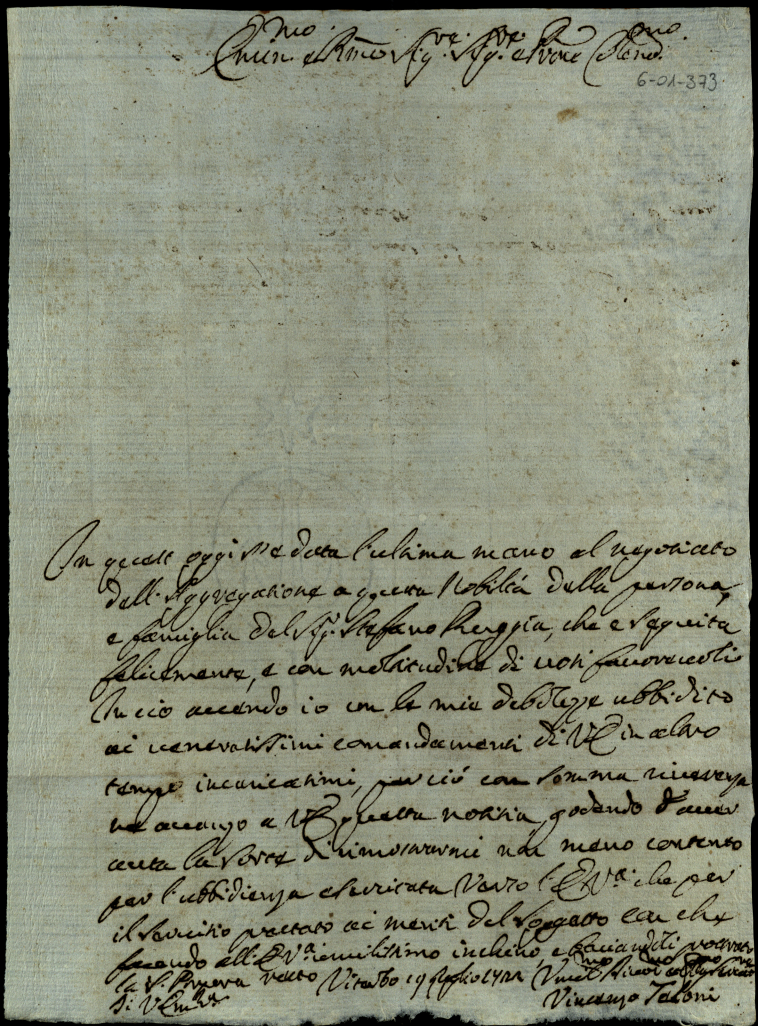 Emin.mo e Rmo Sig.re Sig.re e Prone Colend.mo
6-01-373
In quest oggi s'è data l'ultima mano al negotiato
dell'Aggregatione a questa Nobiltà della persona,
e famiglia del Sig. Stefano, che è seguita
felicemente, e con moltitudine di voti favorevoli
In ciò avendo io con le mie debolezze ubbidito
ai veneratissimi comandamenti di VE in altro
tempo incaricatimi, perciò con somma riverenza
ne avanzo a VE questa notitia, godendo d'aver
auta la sorte di rimostrarmi non meno contento
per l'ubbidienza esercitata verso l'E V.a che per
il servitio prestato ai meriti del sogetto con che
facendo all'E V.a umilissimo inchino e baciandoli prostrato
la S. Porpora resto Viterbo 19 luglio
di VEm.za
Vincenzo